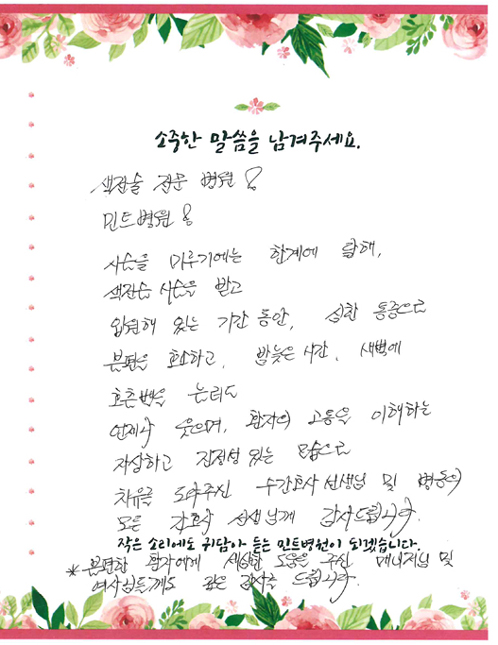 소중한 말씀을 남겨주세요.
색전술 전문 병원!
민트병원!
수술을 미루기에는 한계에 달해,
색전술 시술을 받고
입원해 있는 기간 동안, 심한 통증으로
불편을 호소하고, 밤늦은 시간, 새벽에
호출벨을 눌러도
언제나 웃으며, 환자의 고통을 이해하는
자상하고 진정성 있는 모습으로
치유를 도와주신 수간호사 선생님 및 병동의
모든 간호사 선생님께 감사드립니다.
작은 소리에도 귀담아 듣는 민트병원이 되겠습니다.
* 불편한 환자에게 세심한 도움을 주신 매니저님 및
여사님들께도 깊은 감사를 드립니다.